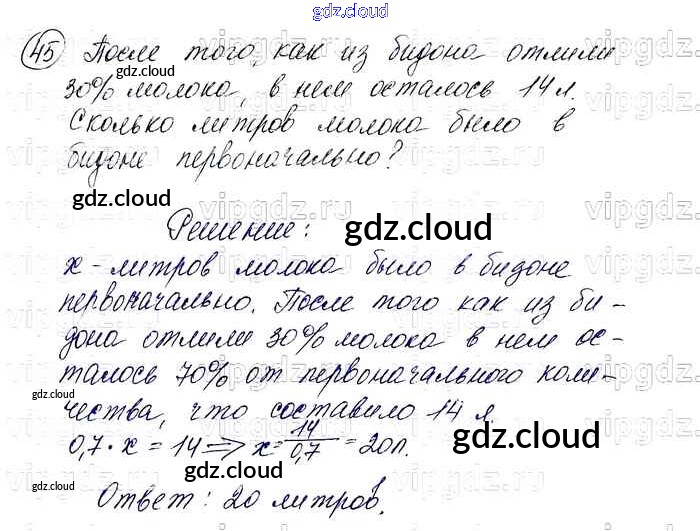 gdz.cloud
45 После того, как из бидона отлили
gdz.cloud
30% молока, в нем осталось 14 л.
Сколько литров молока было в
бидоне первоначально?
gdz.cloud
Решение:
gdz.cloud
x - литров молока было в бидоне
первоначально. После того как из би-
дона отлили 30% молока в нем ос-
талось 70% от первоначального коли-
gdz.cloud
чества, что составило 14 л.
gdz.cloud
0,7 · x = 14 => x = 14/0,7 = 20л.
gdz.cloud
gdz.cloud
Ответ: 20 литров.
gdz.cloud
vipgdz.ru